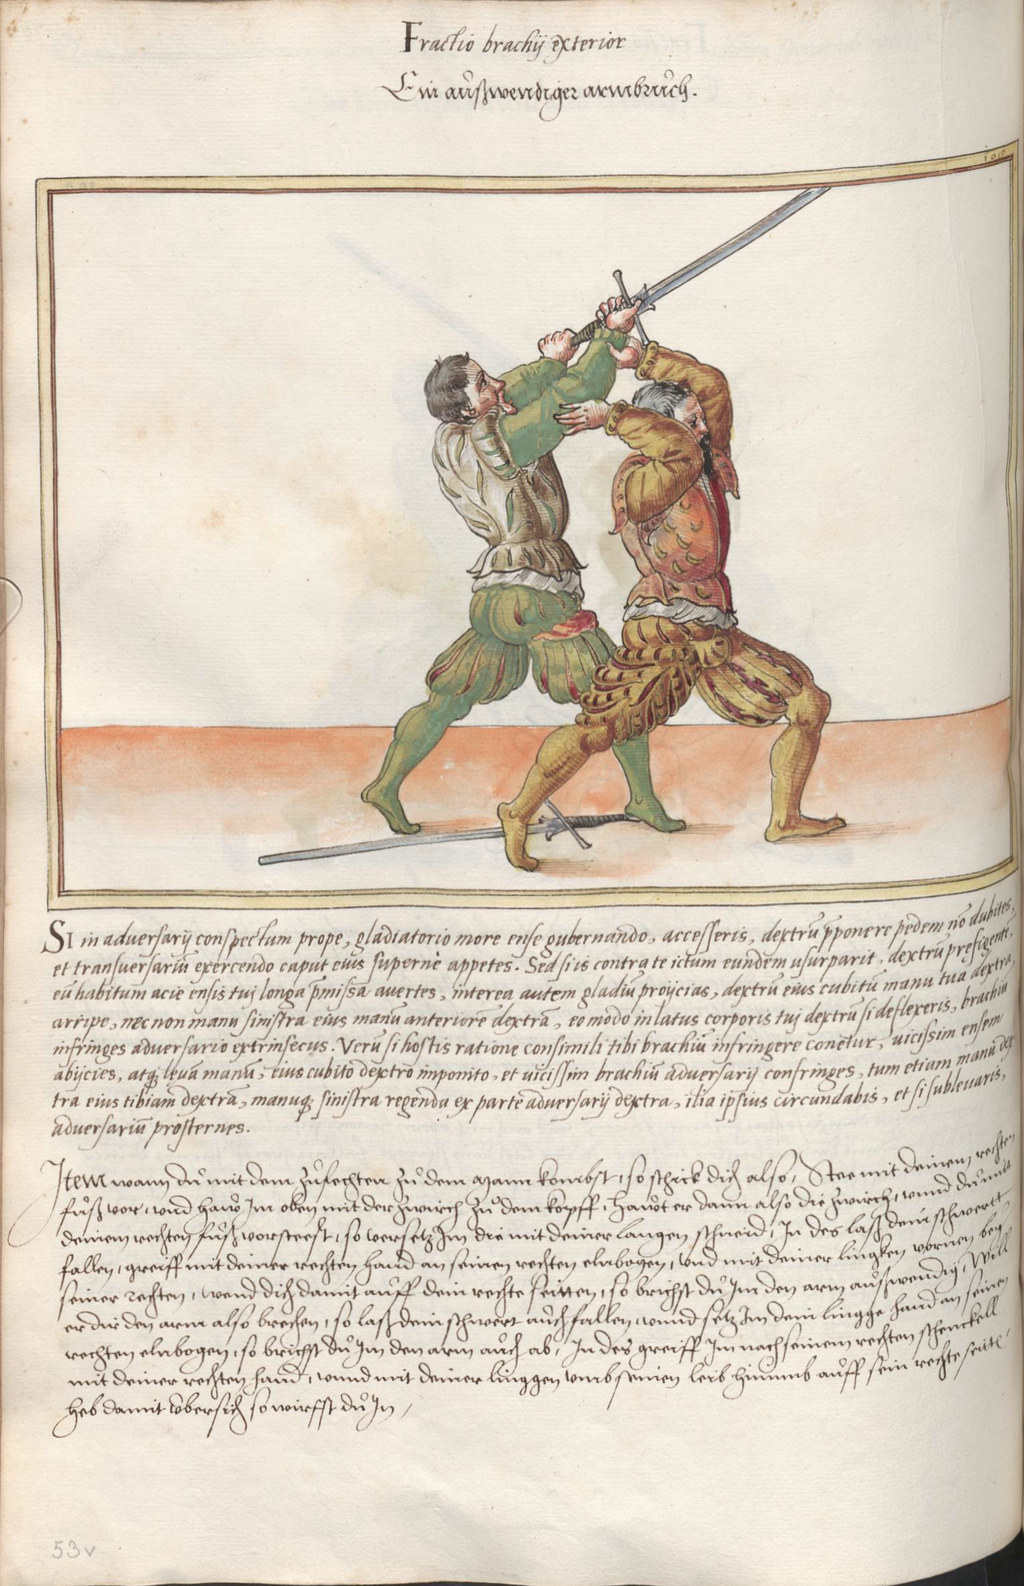 Fractio brachij exterior
Ein aůßwendiger armbrůch.
SI in adversarij conspectum prope, gladiatorio more ense gubernando, accesseris, dextrū p̄ponere pedem nō dubites,
et transversariū exercendo caput eius supernè appetes. Sed si is contra te ictum eundem usurparit, dextrū prefigente,
eū habitum acie ensis tui longa p̄missa avertes, interea autem gladiū proijcias, dextrū eius cubitū manu tua dextra
arripe, nec non manu sinistra eius manū anteriorē dextrā, eo modo in latus corporis tui dextrū si deflexeris, brachiū
infringes adversario extrinsecus. Verū si hostis ratione consimili tibi brachiū infringere conetur, vicissim ensem
abijcies, atq; leva manū, eius cubito dextro imponito, et vicissim brachiū adversarij confringes, tum etiam manu dex
tra eius tibiam dextrā, manuq; sinistra regenda ex parte adversarij dextra, ilia ipsius circundabis, et si sublevaris,
adversariū prosternes.
Item wann dů mit dem zůfechten zů dem mann kombst, so schick dich also, Stee mit deinem rechten
fůß vor, vnnd haůw Im oben mit der zwirch zů dem kopff, haůwt er dann also die zwirch, vnnd dů mit
deinem rechten fůß vorsteest, so versetz Im die mit deiner langen schneid, In des laß dein schwert
fallen, greiff mit deiner rechten hand an seinen rechten elnbogen, vnd mit deiner lingken vornen bey
seiner rechten, wend dich damit aůff dein rechte seitten, so brichst dů Im den arm aůßwendig, Will
er dir den arm also brechen, so laß dein schwert aůch fallen, vnnd setz Im dein lingge hand an seinen
rechten elnbogen, so brichst dů Im den arm aůch ab, In des greiff Im nach seinem rechten schenckell
mit deiner rechten hand, vnnd mit deiner linggen vmb seinen leib hinumb aůff sein rechte seitte,
heb damit vbersich so wirffst dů In,
53v